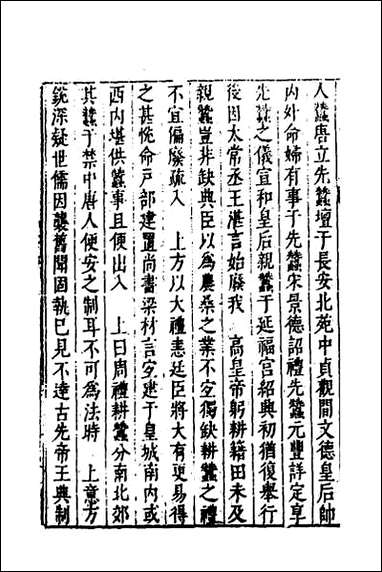 人蠶唐立先蠶壇于長安北苑中貞觀間文德皇后帥
内外命婦有事于先蠶宋景德詔禮先蠶元豐詳定享
先蠶之儀宣和皇后親蠶于延福宫紹興初猶復舉行
後因太常丞王湛言始廢我　高皇帝躬耕籍田未及
親蠶豈非缺典臣以為農桑之業不宜獨缺耕蠶之禮
不宜偏廢疏入　上方以大禮恚廷臣將大有更易得
之甚悅命戸部建置尚書梁材言宜建于皇城南内或
西内堪供蠶事且便出入　上曰周禮耕蠶分南北郊
其蠶于禁中唐人便安之制耳不可為法時　上意方
銳深疑世儒因襲舊聞固執已見不達古先帝王典制